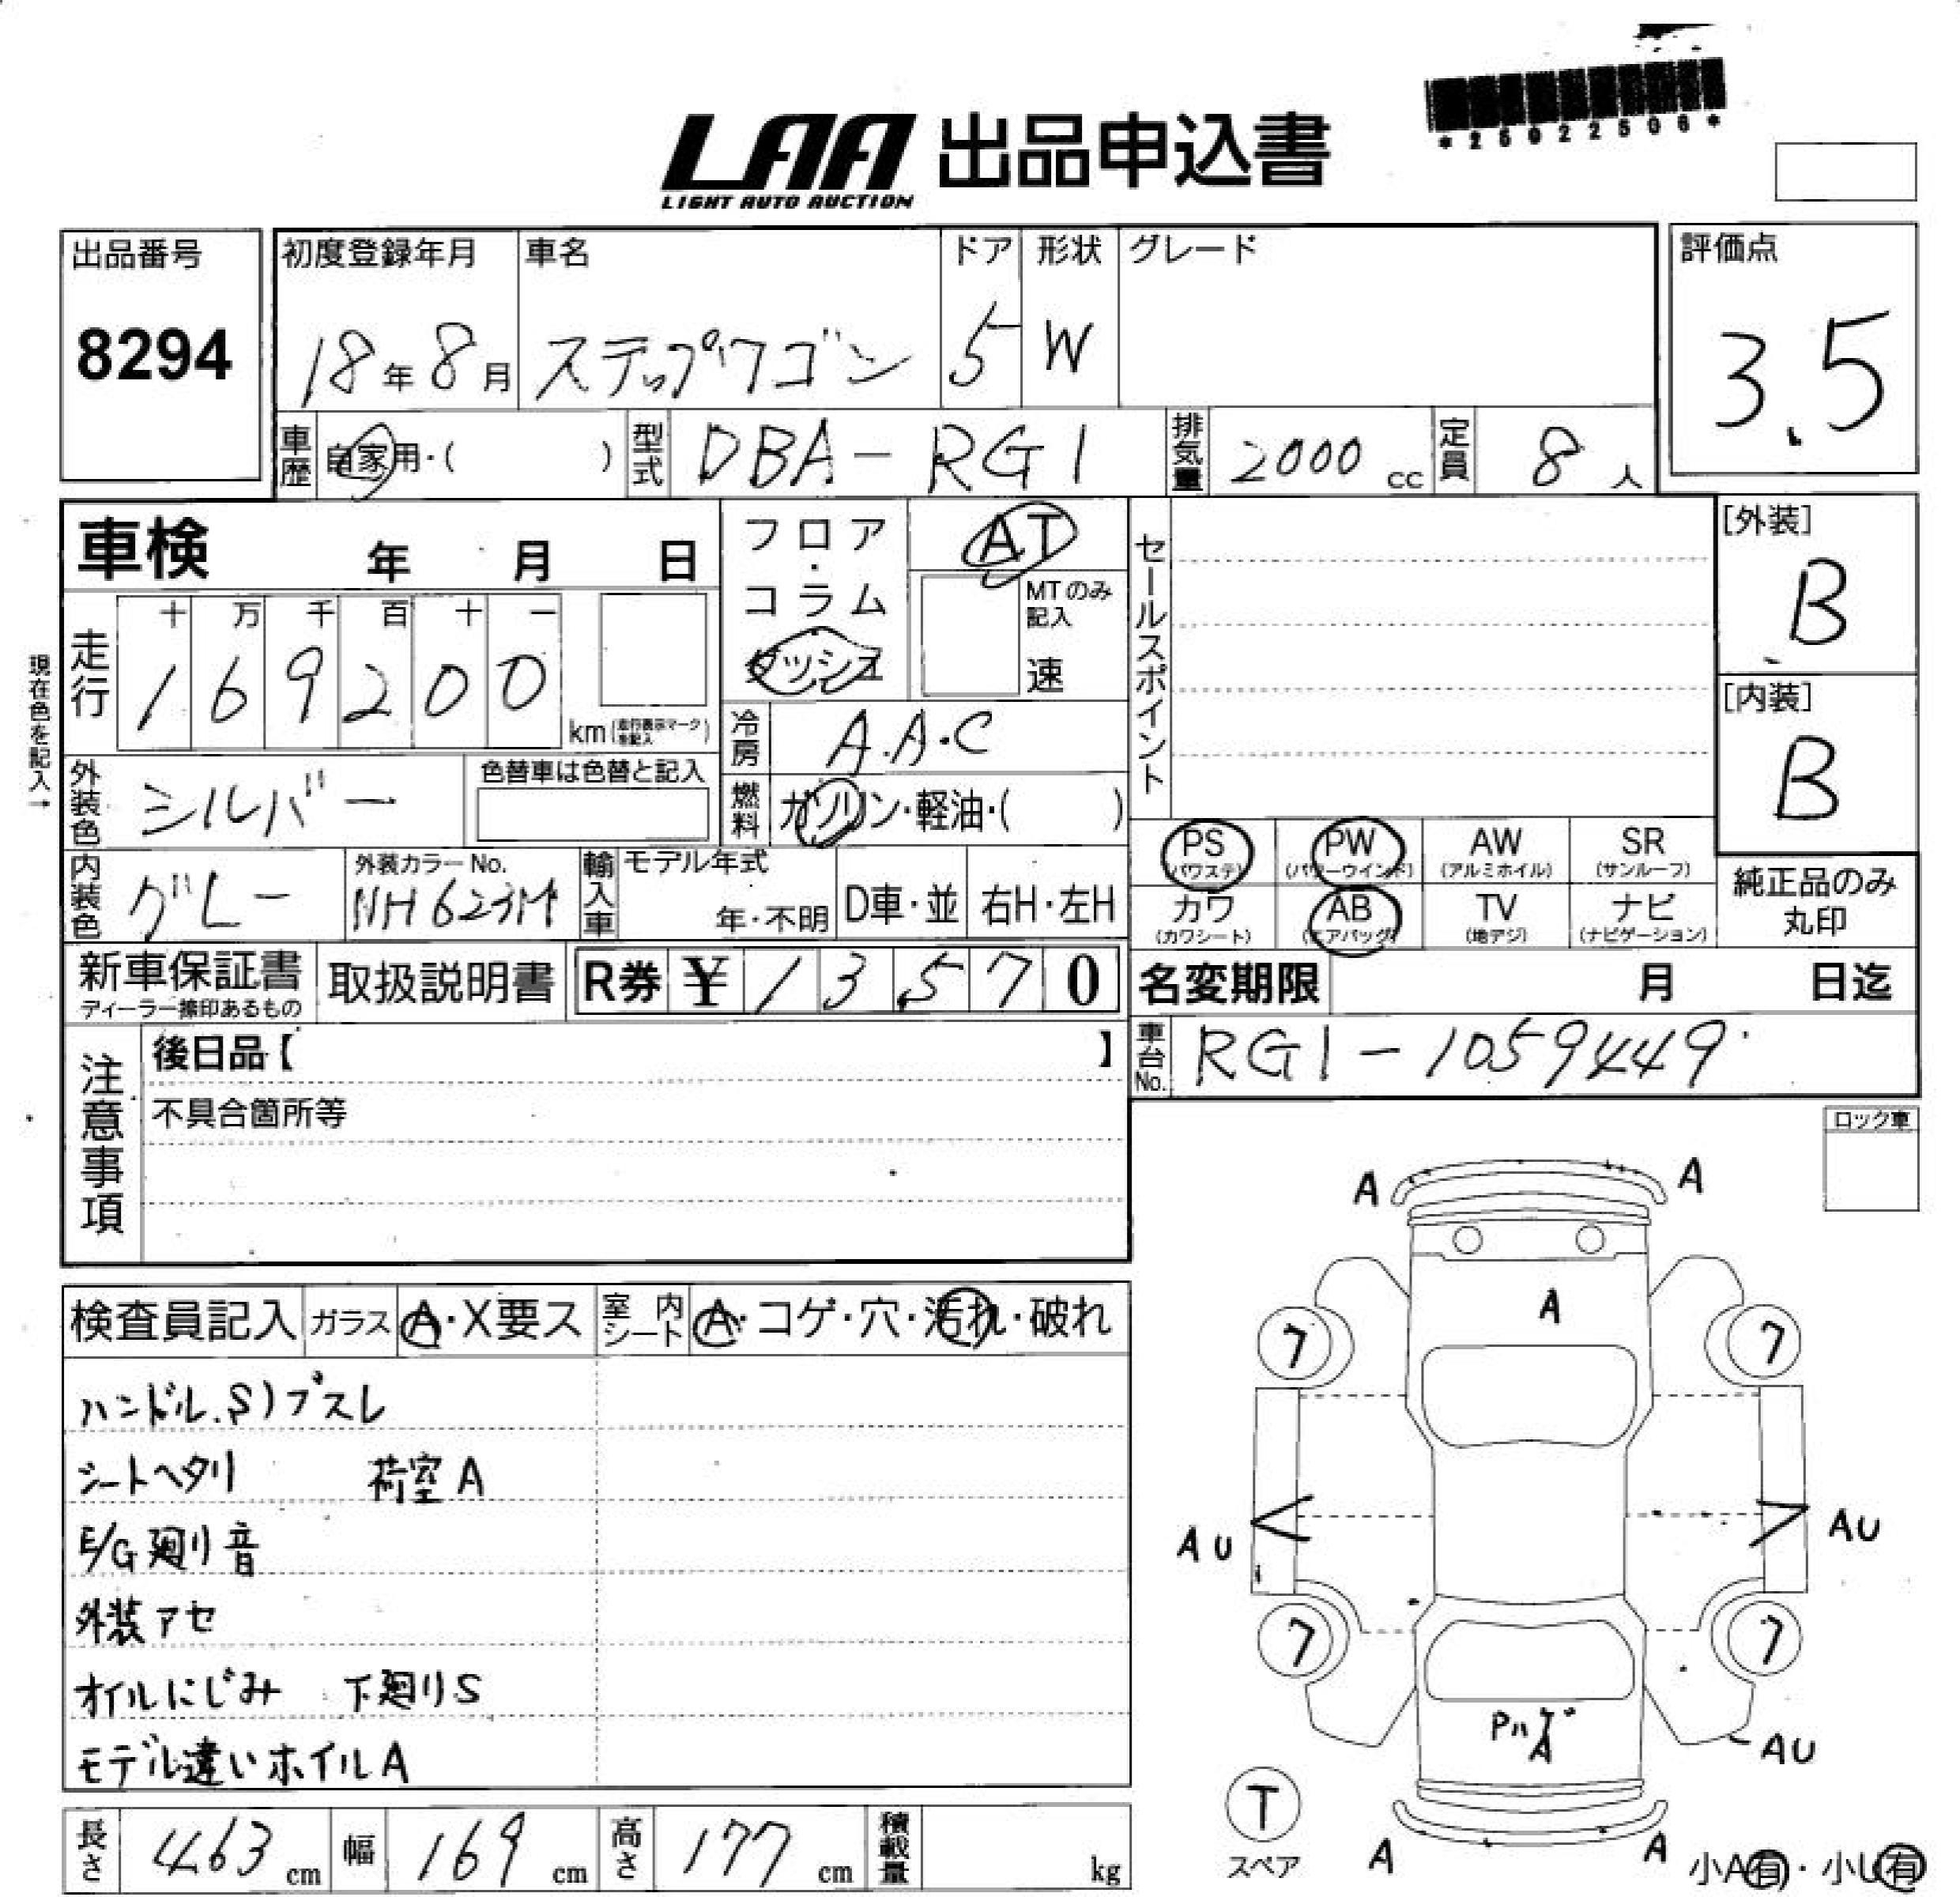 *25022506*
LAA 出品申込書
LIGHT AUTO AUCTION
出品番号
8294
初度登録年月
18年8月
車名
ステップワゴン
ドア
5
形状
W
グレード
評価点
3.5
車歴
自家用・( )
型式
DBA-RG1
排気量
2000 cc
定員
8 人
車検 年 月 日
フロア・コラム
ダッシュ
AT
MTのみ記入
速
セールスポイント
[外装]
B
[内装]
B
現在色を記入→
走行
十 万 千 百 十 一
1 6 9 2 0 0
km (走行表示マークを記入)
冷房
A.A.C
燃料
ガソリン・軽油・( )
外装色
シルバー
色替車は色替と記入
内装色
グレー
外装カラーNo.
NH623M
輸入車
モデル年式
年・不明
D車・並
右H・左H
PS
(パワステ)
PW
(パワーウインド)
AW
(アルミホイル)
SR
(サンルーフ)
カワ
(カワシート)
AB
(エアバッグ)
TV
(地デジ)
ナビ
(ナビゲーション)
純正品のみ
丸印
新車保証書
ディーラー捺印あるもの
取扱説明書
R券 ¥ 1 3 5 7 0
名変期限 月 日迄
車台No.
RG1-1059449
注意事項
後日品【 】
不具合箇所等
ロック車
検査員記入
ガラス
A・X要ス
室内シート
A・コゲ・穴・汚れ・破れ
ハンドル.S)プスレ
シートヘタリ 荷室A
E/G廻り音
外装アセ
オイルにじみ 下廻りS
モデル違いホイルA
A
A
A
7
7
AU
AU
7
7
Pハゲ
A
AU
T
スペア
A
A
小A有・小U有
長さ
463 cm
幅
169 cm
高さ
177 cm
積載量
kg